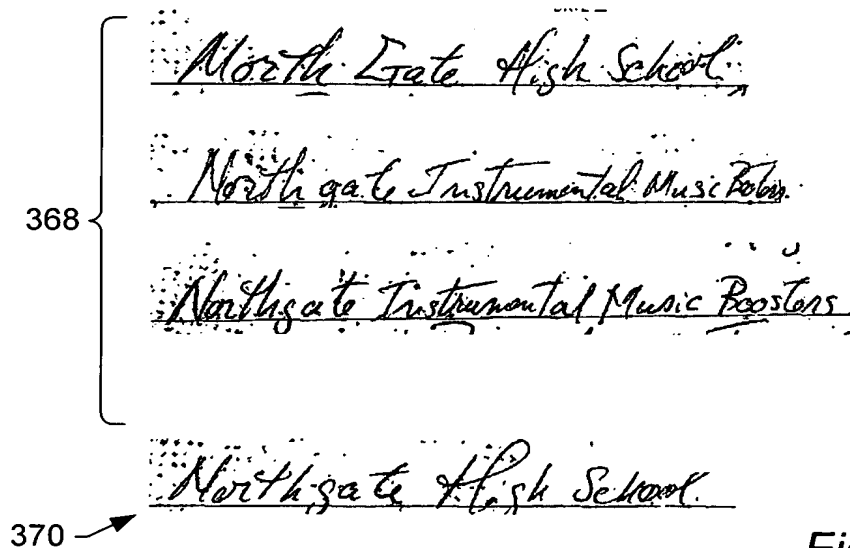 North Gate High School
368
North gate Instrumental Music
Northgate Instrumental Music Boosters
Northgate High School
370